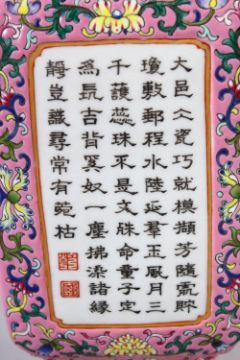 大邑仌瓷巧就模擷芳隨處貯
瓊敷郵程水陸延羣玉風月三
千護蕊珠不是文殊命童子定
為長吉背奚奴一塵拂染諸緣
靜豈識尋常有菀枯